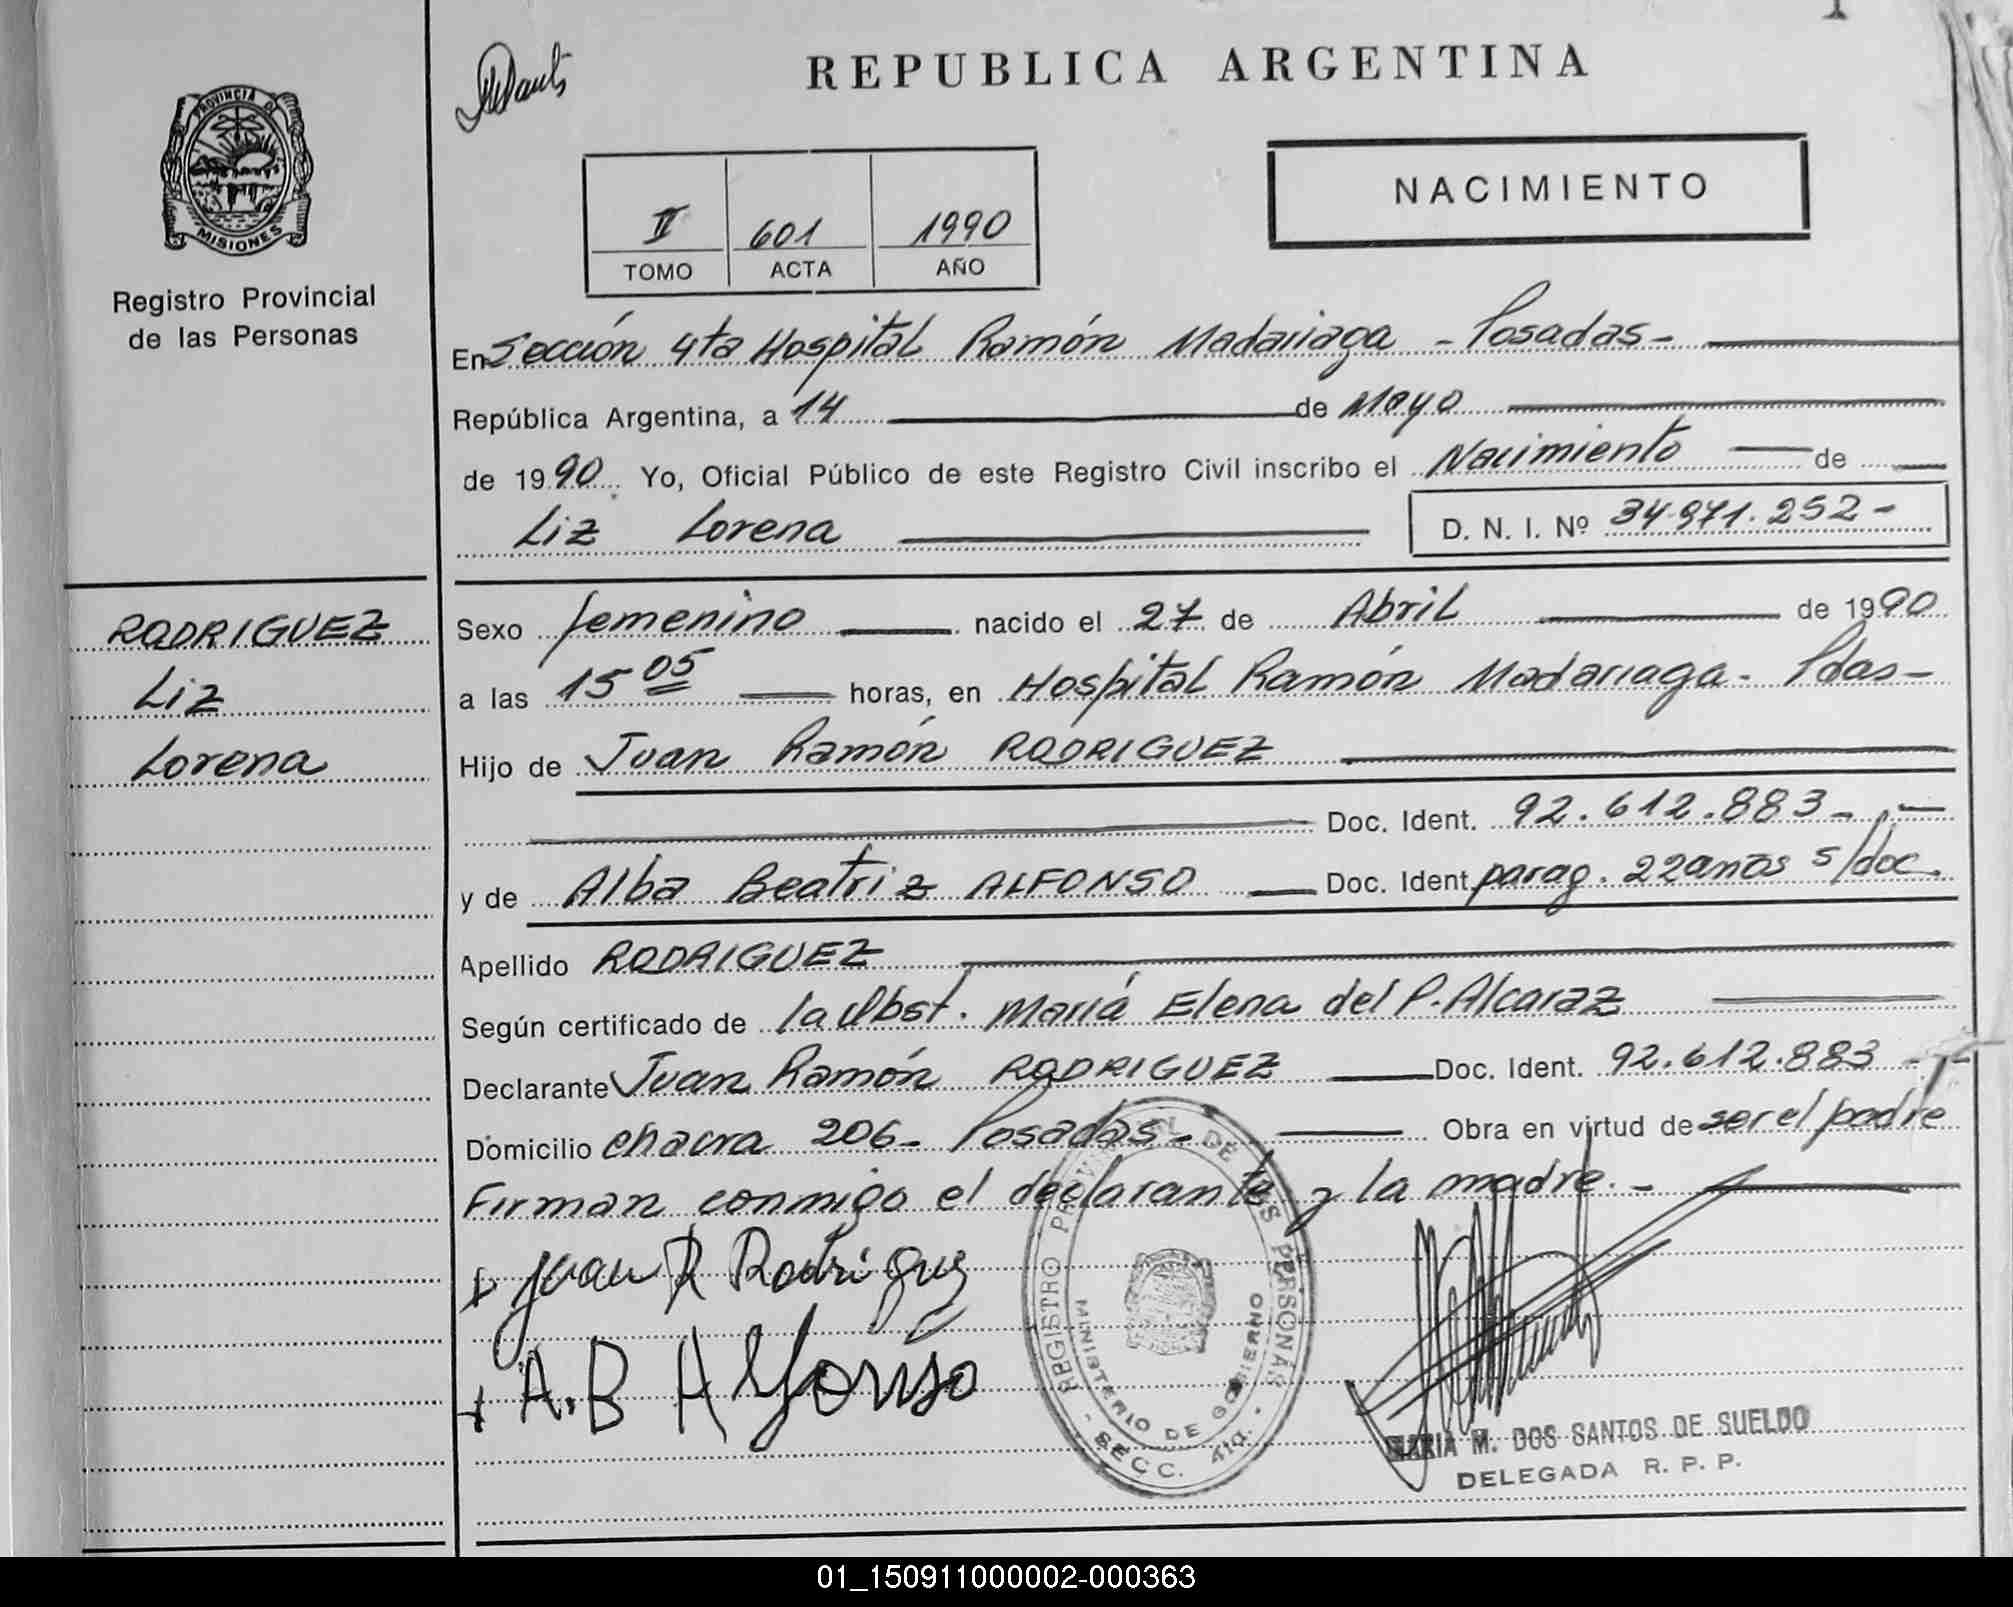 REPUBLICA ARGENTINA
PROVINCIA DE
MISIONES
Registro Provincial
de las Personas
NACIMIENTO
II 601 1990
TOMO ACTA AÑO
En Sección 4ta Hospital Ramón Madariaga - Posadas -
República Argentina, a 14 de Mayo
de 1990. Yo, Oficial Público de este Registro Civil inscribo el Nacimiento de
Liz Lorena
D. N. I. Nº 34.971.252-
RODRIGUEZ
Liz
Lorena
Sexo femenino nacido el 27 de Abril de 1990
a las 15 05 horas, en Hospital Ramón Madariaga - Pdas-
Hijo de Juan Ramón RODRIGUEZ
Doc. Ident. 92.612.883-
y de Alba Beatriz ALFONSO Doc. Ident parag. 22 anos s/doc.
Apellido RODRIGUEZ
Según certificado de la Obst. María Elena del P. Alcaraz
Declarante Juan Ramón RODRIGUEZ Doc. Ident. 92.612.883-
Domicilio chacra 206- Posadas- Obra en virtud de ser el padre
Firman conmigo el declarante y la madre.-
Juan R Rodriguez
A.B Alfonso
REGISTRO PROVINCIAL DE LAS PERSONAS
MINISTERIO DE GOBIERNO
- SECC. 4ta. -
MARIA M. DOS SANTOS DE SUELDO
DELEGADA R. P. P.
01_150911000002-000363